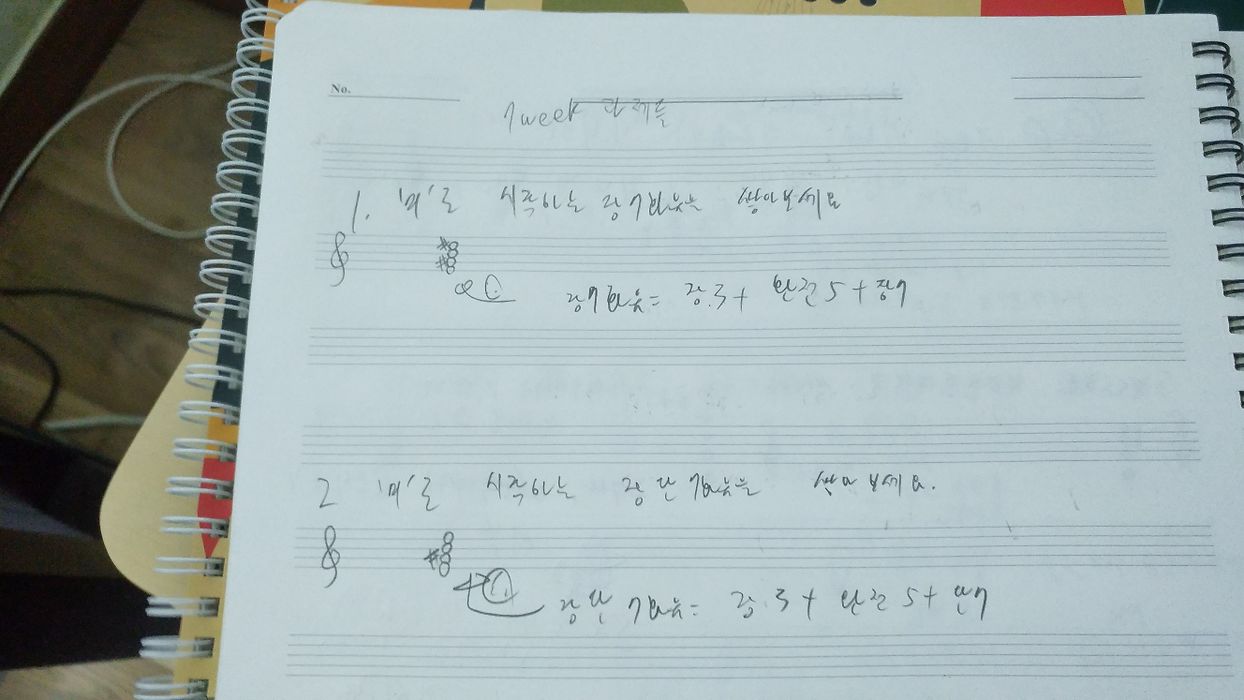 No.
7week 과제물
1. '미'로 시작하는 장7화음을 쌓아보세요
장7화음= 장.3+ 완전5+장7
2 '미'로 시작하는 장단7화음을 쌓아보세요.
장단 7화음= 장.3+ 완전5+ 단7